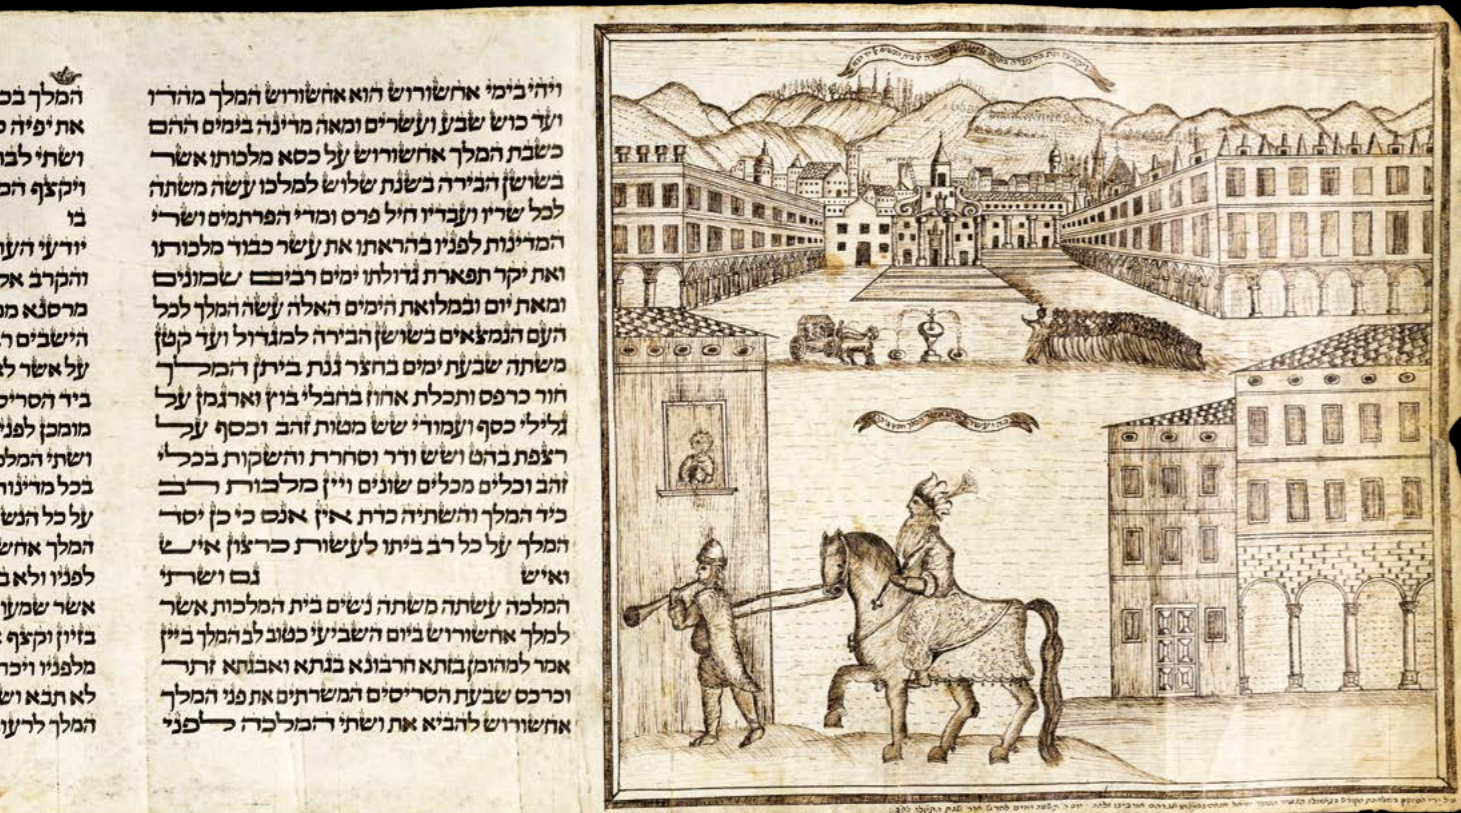 ויהי בימי אחשורוש הוא אחשורוש המלך מהדו
ועד כוש שבע ועשרים ומאה מדינה בימים ההם
כשבת המלך אחשורוש על כסא מלכותו אשר
בשושן הבירה בשנת שלוש למלכו עשה משתה
לכל שריו ועבדיו חיל פרס ומדי הפרתמים ושרי
המדינות לפניו בהראתו את עשר כבוד מלכותו
ואת יקר תפארת גדולתו ימים רבים שמונים
ומאת יום ובמלואת הימים האלה עשה המלך לכל
העם הנמצאים בשושן הבירה למגדול ועד קטן
משתה שבעת ימים בחצר גנת ביתן המלך
חור כרפס ותכלת אחוז בחבלי בוץ וארגמן על
גלילי כסף ועמודי שש מטות זהב וכסף על
רצפת בהט ושש ודר וסחרת והשקות בכלי
זהב וכלים מכלים שונים ויין מלכות רב
כיד המלך והשתיה כדת אין אנס כי כן יסד
המלך על כל רב ביתו לעשות כרצון איש
ואיש גם ושתי
המלכה עשתה משתה נשים בית המלכות אשר
למלך אחשורוש ביום השביעי כטוב לב המלך ביין
אמר למהומן בזתא חרבונא בגתא ואבגתא זתר
וכרכס שבעת הסריסים המשרתים את פני המלך
אחשורוש להביא את ושתי המלכה לפני
המלך
את יפיה
ושתי
ויקצף
בו
יודעי
והקרב
מרסנא
הישבים
על אשר
ביד
מומכן
ושתי
בכל
על כל
המלך
לפניו
אשר שמעו
בזיון וקצף
מלפניו
לא תבא
המלך